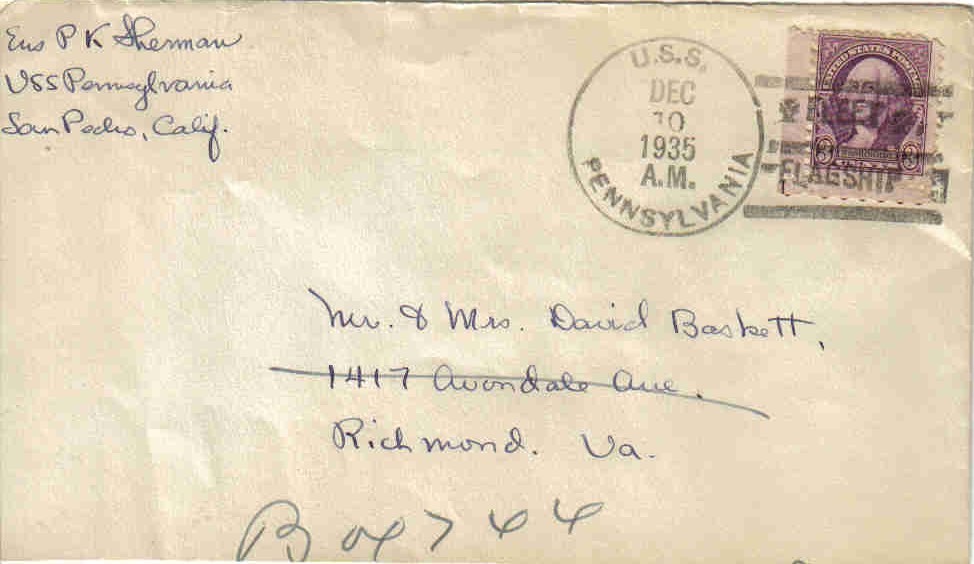 Ens P K Sherman
USS Pennsylvania
San Pedro, Calif.
U.S.S.
DEC
10
1935
A.M.
PENNSYLVANIA
UNITED STATES POSTAGE
3 3
FLEET
FLAGSHIP
Mr. & Mrs. David Baskett,
1417 Avondale Ave.
Richmond. Va.
Box 744